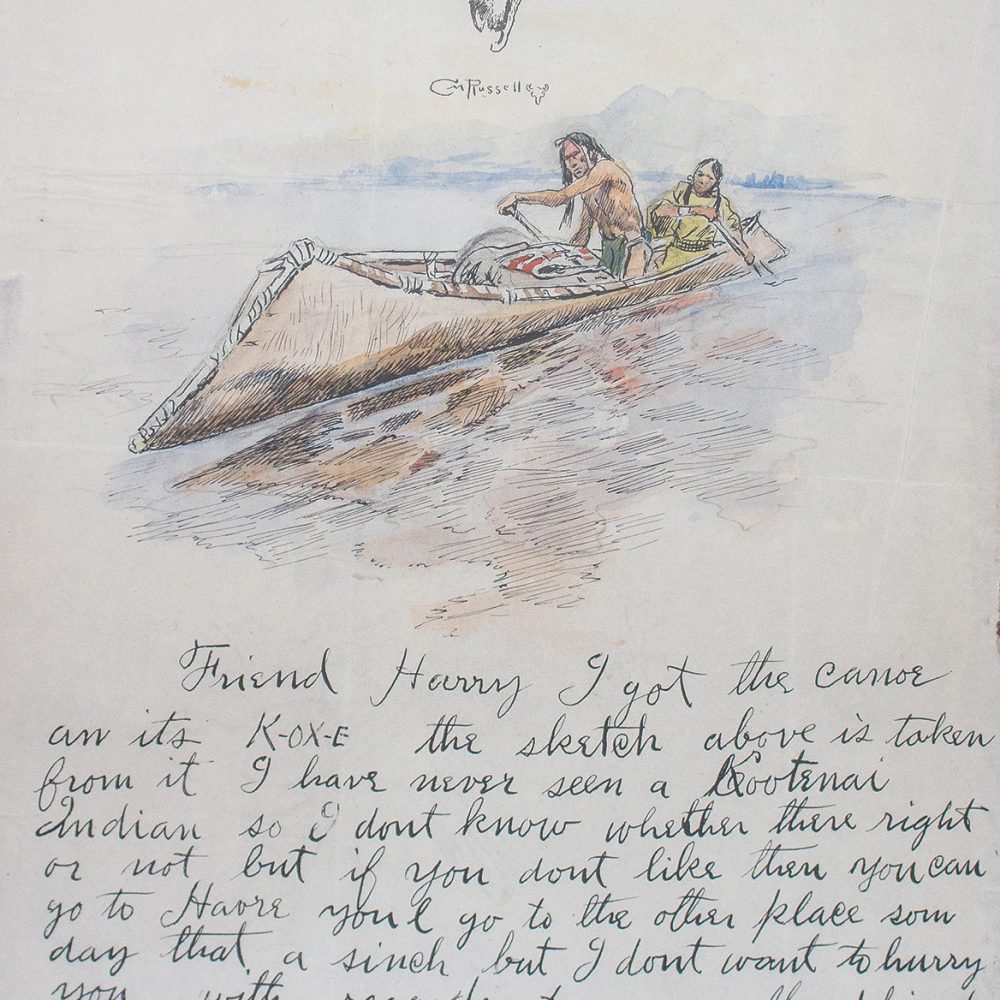 CM Russell
Friend Harry I got the canoe
an its K-OX-E the sketch above is taken
from it I have never seen a Kootenai
Indian so I dont know whether there right
or not but if you dont like them you can
go to Havre youl go to the other place som
day that a sinch but I dont want to hurry
you with regards to